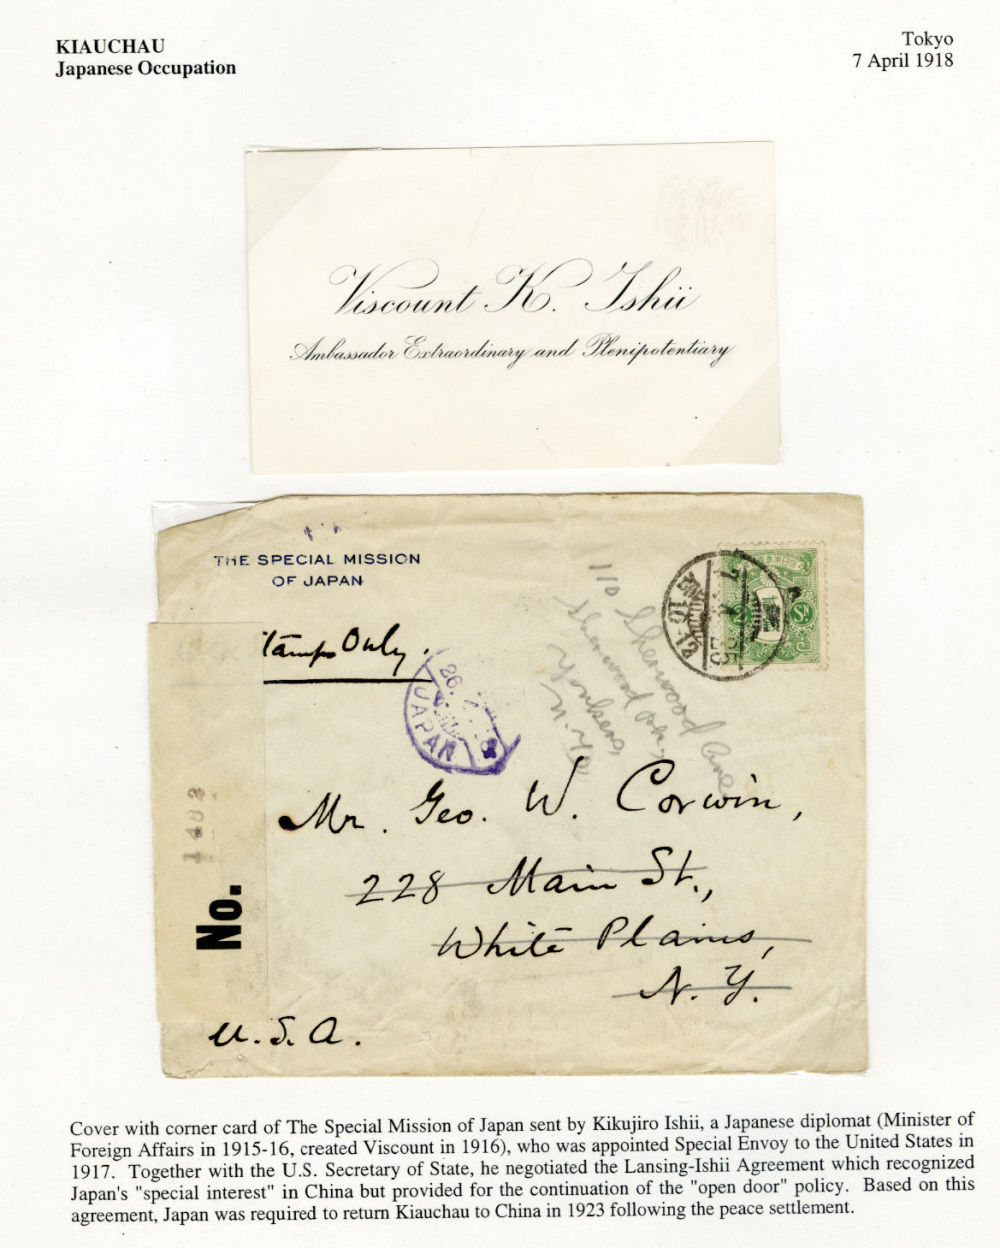 KIAUCHAU
Japanese Occupation
Tokyo
7 April 1918
Viscount K. Ishii
Ambassador Extraordinary and Plenipotentiary
THE SPECIAL MISSION
OF JAPAN
tamps Only.
JAPAN
110 Sherwood Ave
Sherwood Pk,
Yonkers,
N. Y.
Mr. Geo. W. Corwin,
228 Main St.,
White Plains,
N. Y.
U. S. A.
1488
No.
Cover with corner card of The Special Mission of Japan sent by Kikujiro Ishii, a Japanese diplomat (Minister of
Foreign Affairs in 1915-16, created Viscount in 1916), who was appointed Special Envoy to the United States in
1917. Together with the U.S. Secretary of State, he negotiated the Lansing-Ishii Agreement which recognized
Japan's "special interest" in China but provided for the continuation of the "open door" policy. Based on this
agreement, Japan was required to return Kiauchau to China in 1923 following the peace settlement.